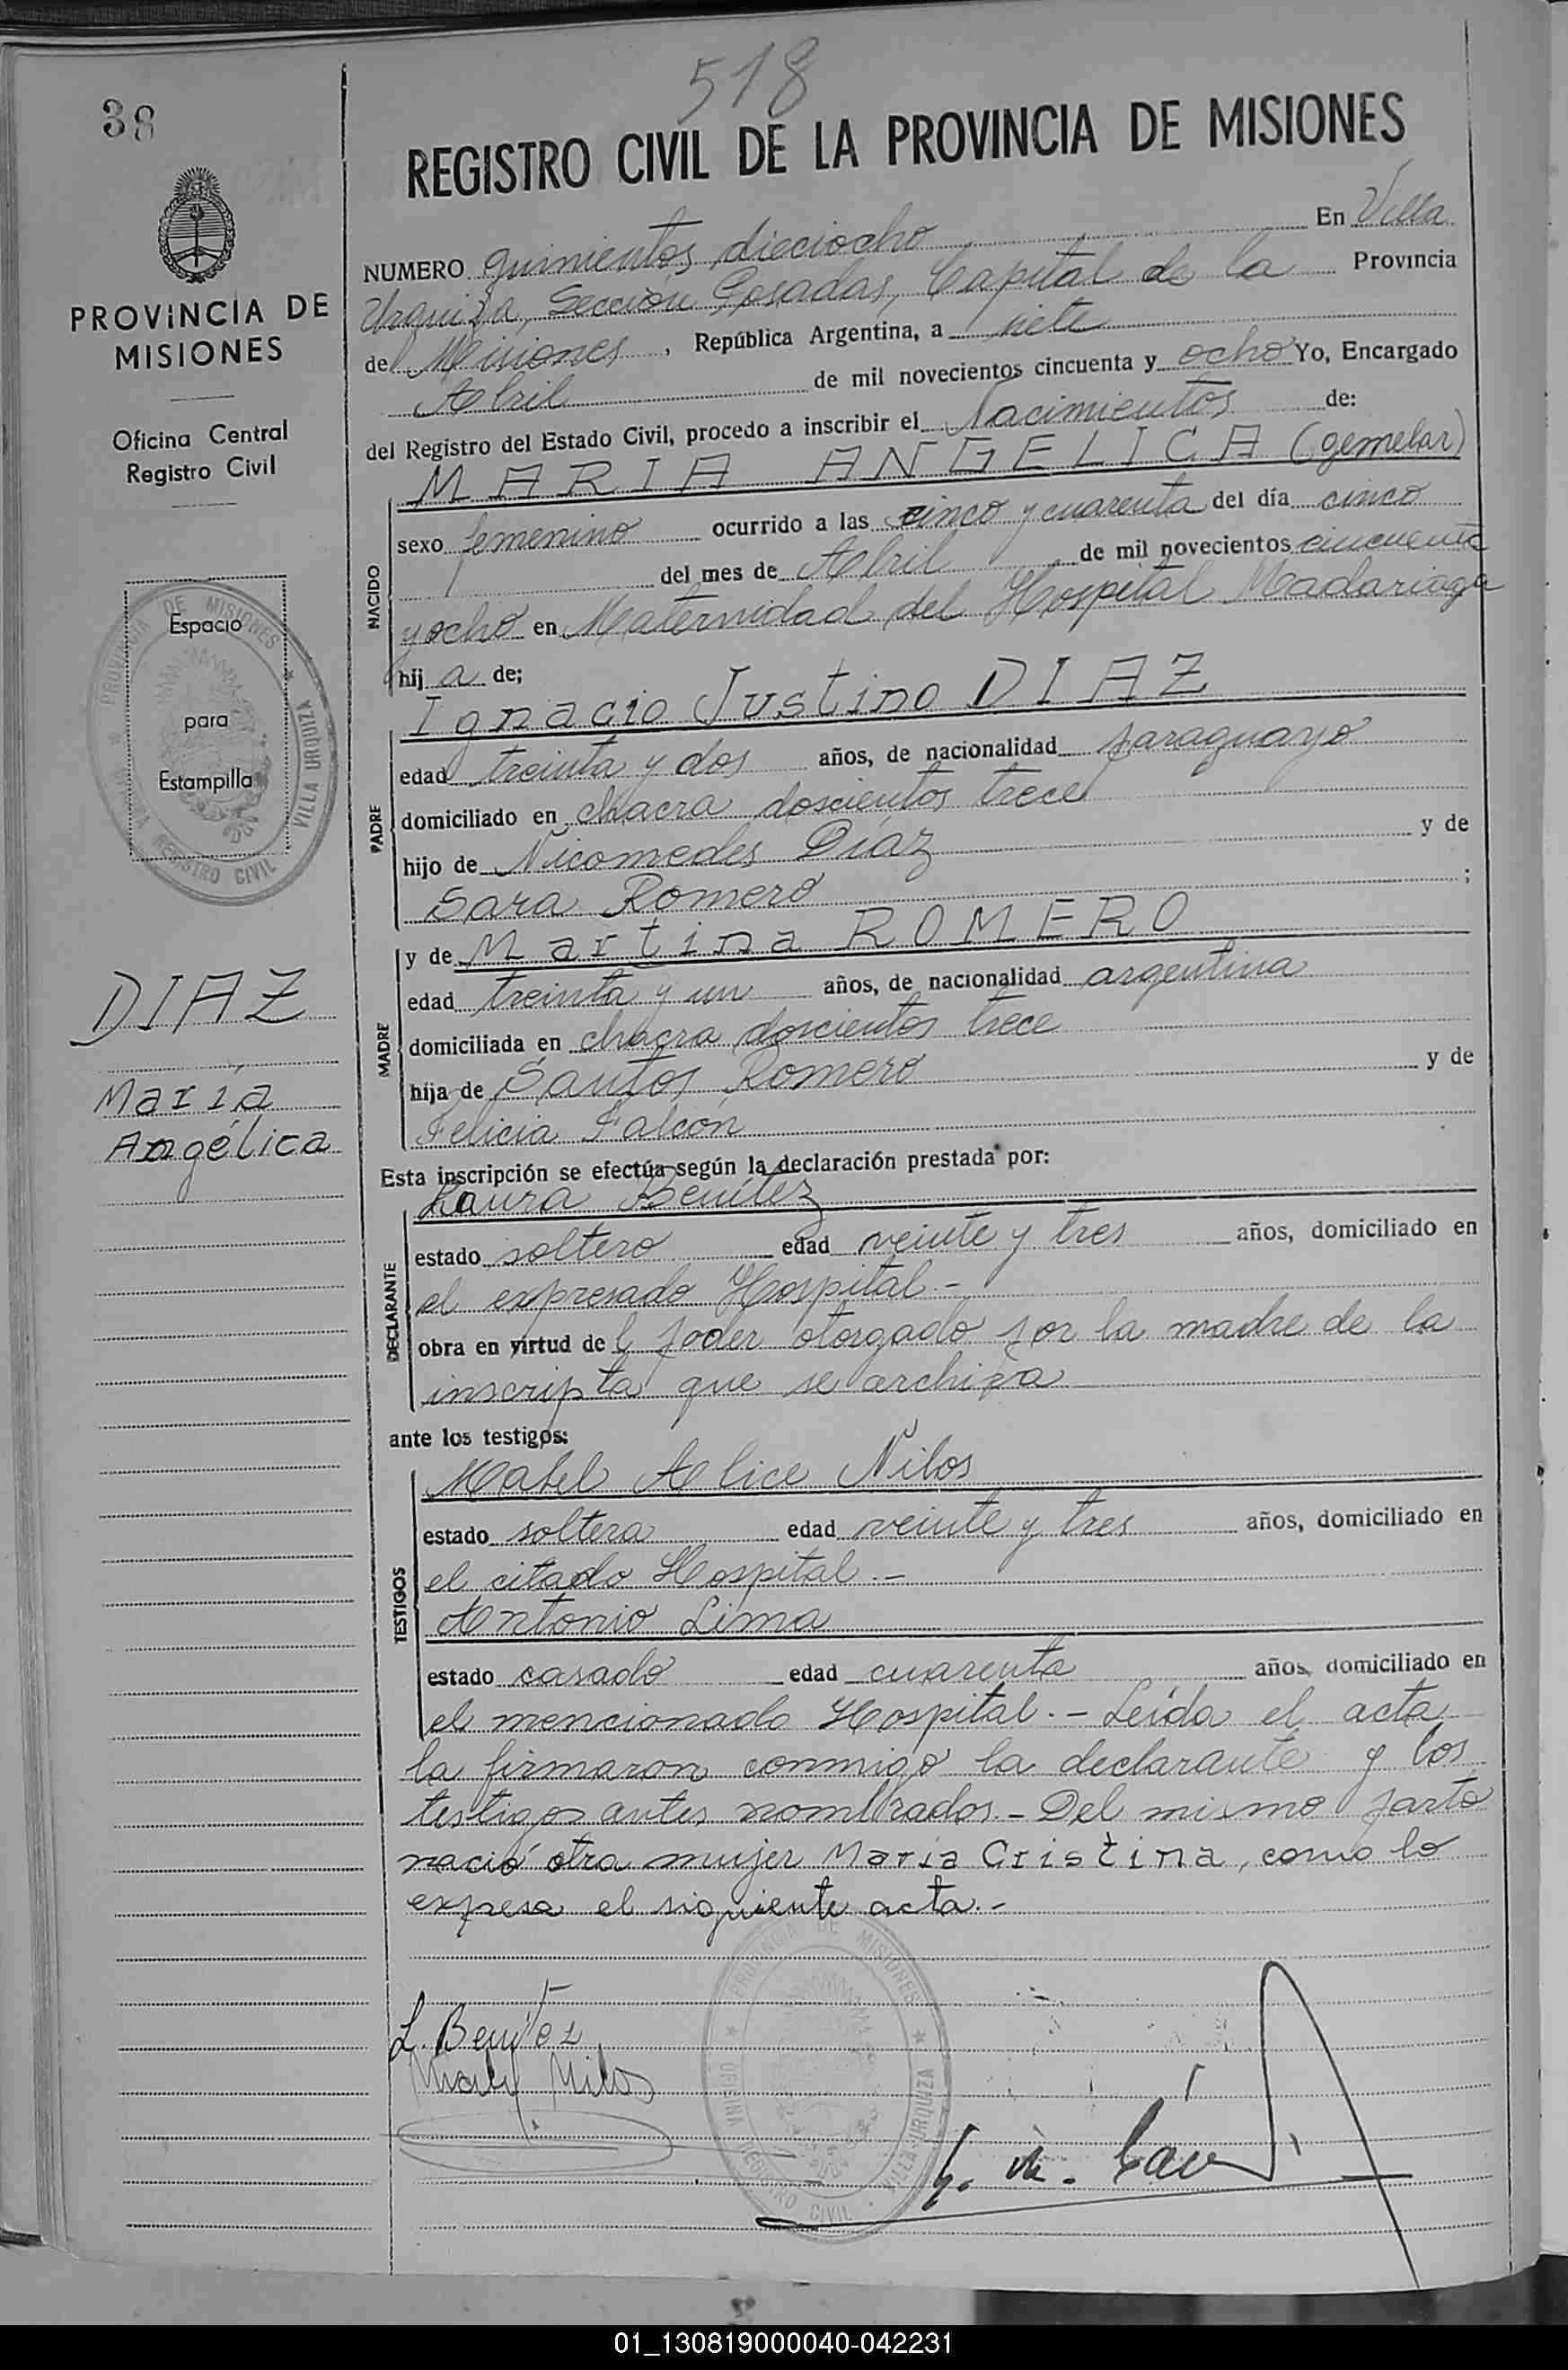 518
38
REGISTRO CIVIL DE LA PROVINCIA DE MISIONES
PROVINCIA DE
MISIONES
Oficina Central
Registro Civil
Espacio
para
Estampilla
PROVINCIA DE MISIONES * VILLA URQUIZA
REGISTRO CIVIL
DIAZ
María
Angélica
NUMERO quinientos dieciocho En Villa
Urquiza, Sección Posadas, Capital de la Provincia
del Misiones, República Argentina, a siete
Abril de mil novecientos cincuenta y ocho Yo, Encargado
del Registro del Estado Civil, procedo a inscribir el Nacimientos de:
NACIDO
MARIA ANGELICA (gemelar)
sexo femenino ocurrido a las cinco y cuarenta del día cinco
del mes de Abril de mil novecientos cincuenta
y ocho en Maternidad del Hospital Madariaga
hij a de;
PADRE
Ignacio Justino DIAZ
edad treinta y dos años, de nacionalidad paraguayo
domiciliado en chacra doscientos trece
hijo de Nicomedes Díaz y de
Sara Romero ;
MADRE
y de Martina ROMERO
edad treinta y un años, de nacionalidad argentina
domiciliada en chacra doscientos trece
hija de Santos Romero y de
Felicia Falcón
Esta inscripción se efectúa según la declaración prestada por:
DECLARANTE
Laura Benítez
estado soltero edad veinte y tres años, domiciliado en
el expresado Hospital.-
obra en virtud de l poder otorgado por la madre de la
inscripta que se archiva
ante los testigos:
TESTIGOS
Mabel Alice Nilos
estado soltera edad veinte y tres años, domiciliado en
el citado Hospital.-
Antonio Lima
estado casado edad cuarenta años, domiciliado en
el mencionado Hospital.- Leída el acta
la firmaron conmigo la declarante y los
testigos antes nombrados.- Del mismo parto
nació otra mujer María Cristina, como lo
expresa el siguiente acta.-
L. Benítez
PROVINCIA DE MISIONES * VILLA URQUIZA
OFICINA REGISTRO CIVIL
01_130819000040-042231